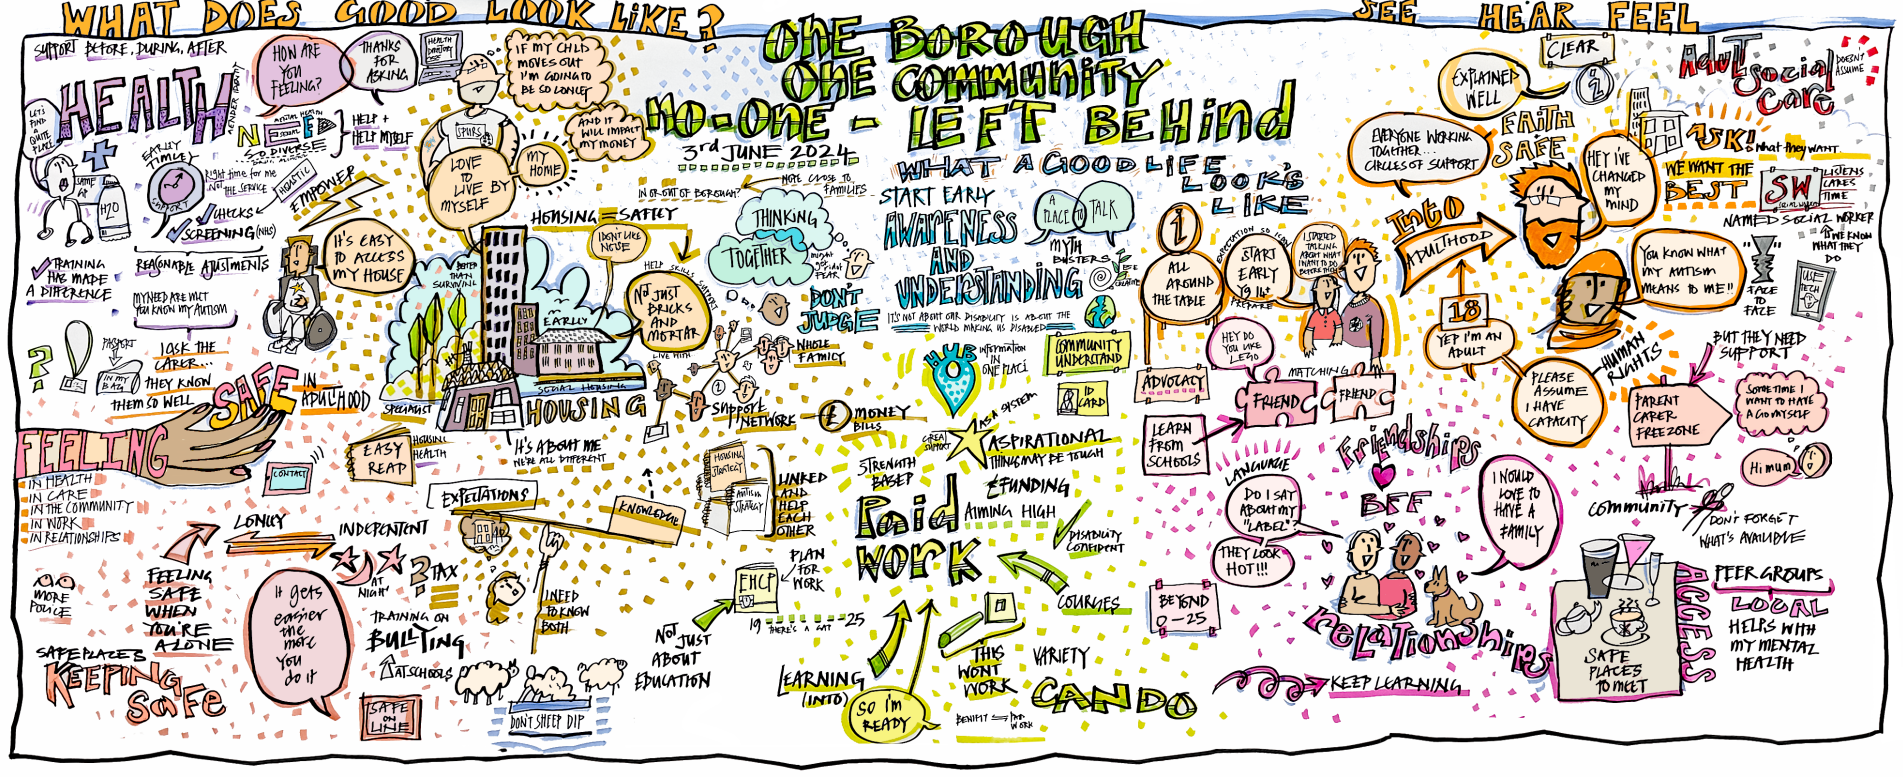 WHAT DOES GOOD LOOK LIKE?
ONE BOROUGH
ONE COMMUNITY
NO-ONE - LEFT BEHIND
3rd JUNE 2024
SEE HEAR FEEL
SUPPORT BEFORE, DURING, AFTER
HEALTH
GENDER IDENTITY
HOW ARE
YOU
FEELING?
THANKS
FOR
ASKING
LET'S
FIND
A
QUITE
PLACE
MENTAL HEALTH
NEED
SO DIVERSE
HELP +
HELP MYSELF
H2O
EARLY
TIMELY
SUPPORT
Right time for me
Not THE SERVICE
HOLISTIC
EMPOWER
CHECKS
SCREENING (NHS)
TRAINING
HAS MADE
A DIFFERENCE
REASONABLE AJUSTMENTS
MY NEED ARE MET
YOU KNOW MY AUTISM
?
PASSPORT
IN MY
BAG
I ASK THE
CARER...
THEY KNOW
THEM SO WELL
IF MY CHLD
MOVES OUT
I'M GOING TO
BE SO LONELY
AND IT
WILL IMPACT
MY MONEY
SPURS
LOVE
TO
LIVE BY
MYSELF
MY
HOME
IT'S EASY
TO ACCESS
MY HOUSE
IN OR OUT OF BOROUGH?
MOVE CLOSE TO
FAMILIES
HOUSING = SAFELY
I DON'T LIKE
NOISE
HELP SKILLS
SUPPORT
BETTER
THAN
SURVIVING
NOT JUST
BRICKS
AND
MORTAR
EARLLY
LIVE WITH
SOCIAL HOUSING
SPECIALIST
HOUSING
IT'S ABOUT ME
WE'RE ALL DIFFERENT
THINKING
TOGETHER
DON'T
JUDGE
WHOLE
FAMILY
SUPPORT
NETWORK
£
MONEY
BILLS
SAFE IN
ADULTHOOD
FEELING
IN HEALTH
IN CARE
IN THE COMMUNITY
IN WORK
IN RELATIONSHIPS
CONTACT
EASY
READ
HOUSING
HEALTH
EXPECTATIONS
KNOWLEDGE
HOUSING
STRATEGY
AUTISM
STRATEGY
LINKED
AND
HELP
EACH
OTHER
I NEED
TO KNOW
BOTH
LONELY
INDEPENTENT
MORE
POLICE
FEELING
SAFE
WHEN
YOU'RE
ALONE
SAFEPLACES
KEEPING
SAFE
It gets
easier
the
more
you
do it
AT
NIGHT
? TAX
TRAINING ON
BULLYING
AT SCHOOLS
SAFE
ON
LINE
DON'T SHEEP DIP
WHAT A GOOD LIFE
LOOK'S
LIKE
START EARLY
AWARENESS
AND
UNDERSTANDING
IT'S NOT ABOUT OUR DISABILITY IS ABOUT THE
WORLD MAKING US DISABLED
A
PLACE
TO
TALK
MYTH
BUSTERS
BE
CREATIVE
HUB
INFORMATION
IN
ONE PLACE
COMMUNITY
UNDERSTAND
ID
CARD
AS A SYSTEM
GREAT
SUPPORT
ASPIRATIONAL
THINGS MAY BE TOUGH
STRENGTH
BASED
£ FUNDING
AIMING HIGH
PAID
WORK
DISABILITY
CONFIDENT
PLAN
FOR
WORK
EHCP
19 25
THERE'S A GAP
NOT JUST
ABOUT
EDUCATION
LEARNING
(INTO)
SO I'M
READY
COURSES
THIS
WON'T
WORK
VARIETY
CAN DO
BENIFIT
WORK
i
ALL
AROUND
THE TABLE
ADVOCACY
LEARN
FROM
SCHOOLS
START
EARLY
PREPARE
I STARTED
TALKING
ABOUT WHAT
I WANT TO DO
BEFORE THEN
HEY DO
YOU LIKE
LEGO
MATCHING
FRIEND
FRIEND
FRIENDSHIPS
BFF
LANGUAGE
DO I SAY
ABOUT MY
"LABEL"
THEY LOOK
HOT!!!
BEYOND
0-25
I WOULD
LOVE TO
HAVE A
FAMILY
RELATIONSHIPS
KEEP LEARNING
EXPLAINED
WELL
CLEAR
i
EVERYONE WORKING
TOGETHER...
CIRCLES OF SUPPORT
FAITH
SAFE
HEY I'VE
CHANGED
MY
MIND
INTO
ADULTHOOD
18
YEP I'M AN
ADULT
YOU KNOW WHAT
MY AUTISM
MEANS TO ME!!
PLEASE
ASSUME
I HAVE
CAPACITY
HUMAN
RIGHTS
ADULT
SOCIAL
CARE
DOESN'T
ASSUME
ASK!
What they want
WE WANT THE
BEST
SW
SOCIAL WORKER
LISTENS
CARES
TIME
NAMED SOCIAL WORKER
WE KNOW
WHAT THEY
DO
FACE
TO
FACE
USE
TECH
BUT THEY NEED
SUPPORT
PARENT
CARER
FREE ZONE
SOMETIME I
WANT TO HAVE
A GO MYSELF
Hi mum
COMMUNITY
DON'T FORGET
WHAT'S AVAILABLE
PEER GROUPS
LOCAL
HELPS WITH
MY MENTAL
HEALTH
ACCESS
SAFE
PLACES
TO MEET